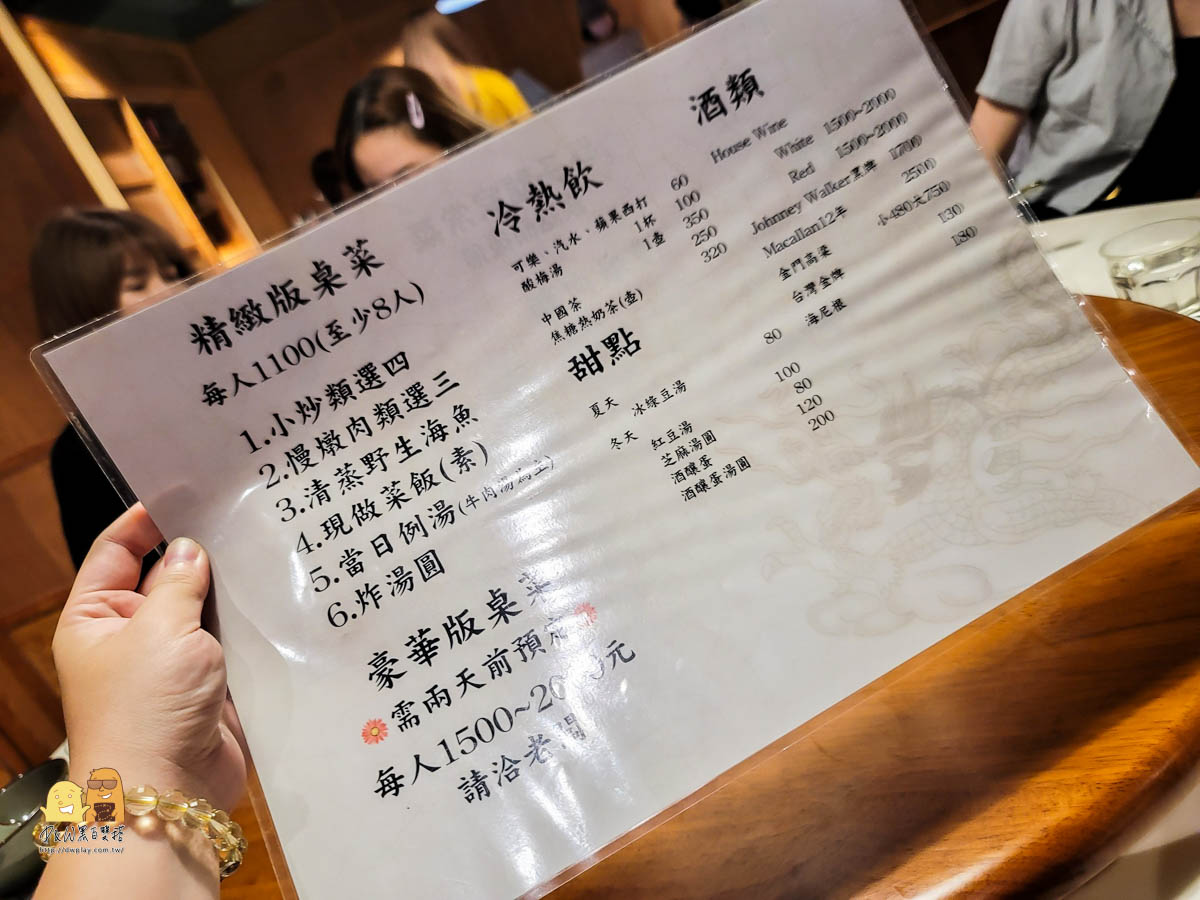 精緻版桌菜
每人1100(至少8人)
1.小炒類選四
2.慢燉肉類選三
3.清蒸野生海魚
4.現做菜飯(素)
5.當日例湯(牛肉湯為主)
6.炸湯圓
豪華版桌菜
需兩天前預定
每人1500~2000元
請洽老闆
冷熱飲
可樂、汽水、蘋果西打 60
酸梅湯 1杯 100
1壺 350
中國茶 250
焦糖熱奶茶(壺) 320
甜點
夏天 冰綠豆湯 80
冬天 紅豆湯 100
芝麻湯圓 80
酒釀蛋 120
酒釀蛋湯圓 200
酒類
House Wine
White 1500~2000
Red 1500~2000
Johnney Walker黑牌 1700
Macallan12年 2500
金門高粱 小480大750
台灣金牌 130
海尼根 180
黑白雙搭
http://dwplay.com.tw/